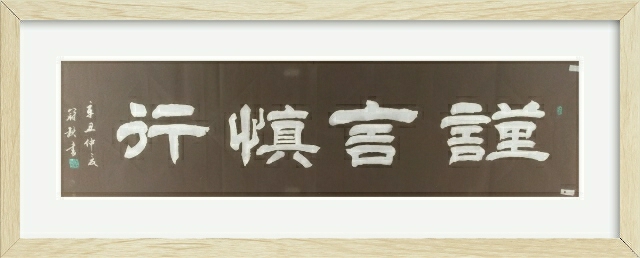 謹言慎行
辛丑仲夏